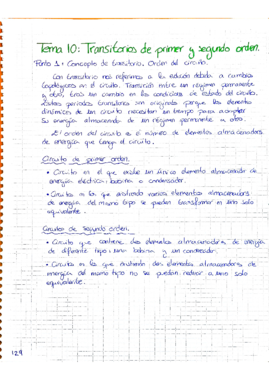 Tema 10: Transitorios de primer y segundo orden.
Punto 1: Concepto de transitorio. Orden del circuito.
Con transitorio nos referimos a la evolución debido a cambios
topológicos en el circuito. Transición entre un régimen permanente
y otro, tras un cambio en las condiciones de estado del circuito.
Estos periodos transitorios son originados porque los elementos
dinámicos de un circuito necesitan un tiempo para adaptar
su energía almacenada de un régimen permanente u otro.
El orden del circuito es el número de elementos almacenadores
de energía que tenga el circuito.
Circuito de primer orden.
• Circuito en el que existe un único elemento almacenador de
energía eléctrica, bobina o condensador.
• Circuito en los que existiendo varios elementos almacenadores
de energía del mismo tipo se pueden transformar en uno solo
equivalente.
Circuitos de segundo orden.
• Circuito que contiene dos elementos almacenadores de energía
de diferente tipo, una bobina y un condensador.
• Circuitos en los que existirán dos elementos almacenadores de
energía del mismo tipo no se puedan reducir a uno solo
equivalente.
129